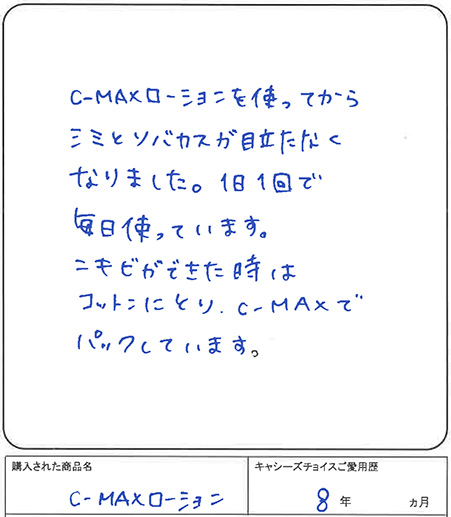 C-MAXローションを使ってから
シミとソバカスが目立たなく
なりました。1日1回で
毎日使っています。
ニキビができた時は
コットンにとり、C-MAXで
パックしています。
購入された商品名
キャシーズチョイスご愛用歴
C-MAXローション
8年 ヵ月